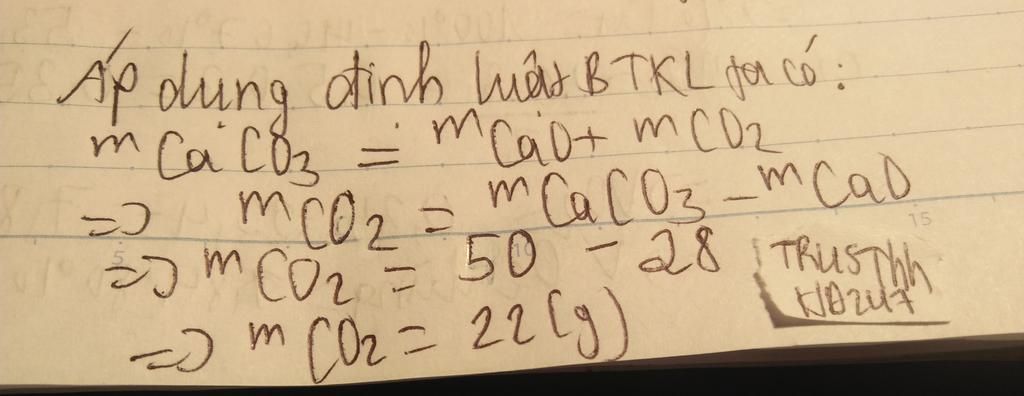 Áp dụng định luật BTKL ta có:
mCaCO3 = mCaO + mCO2
=> mCO2 = mCaCO3 - mCaO
=> mCO2 = 50 - 28
=> mCO2 = 22(g)
TRUSThh
15
5